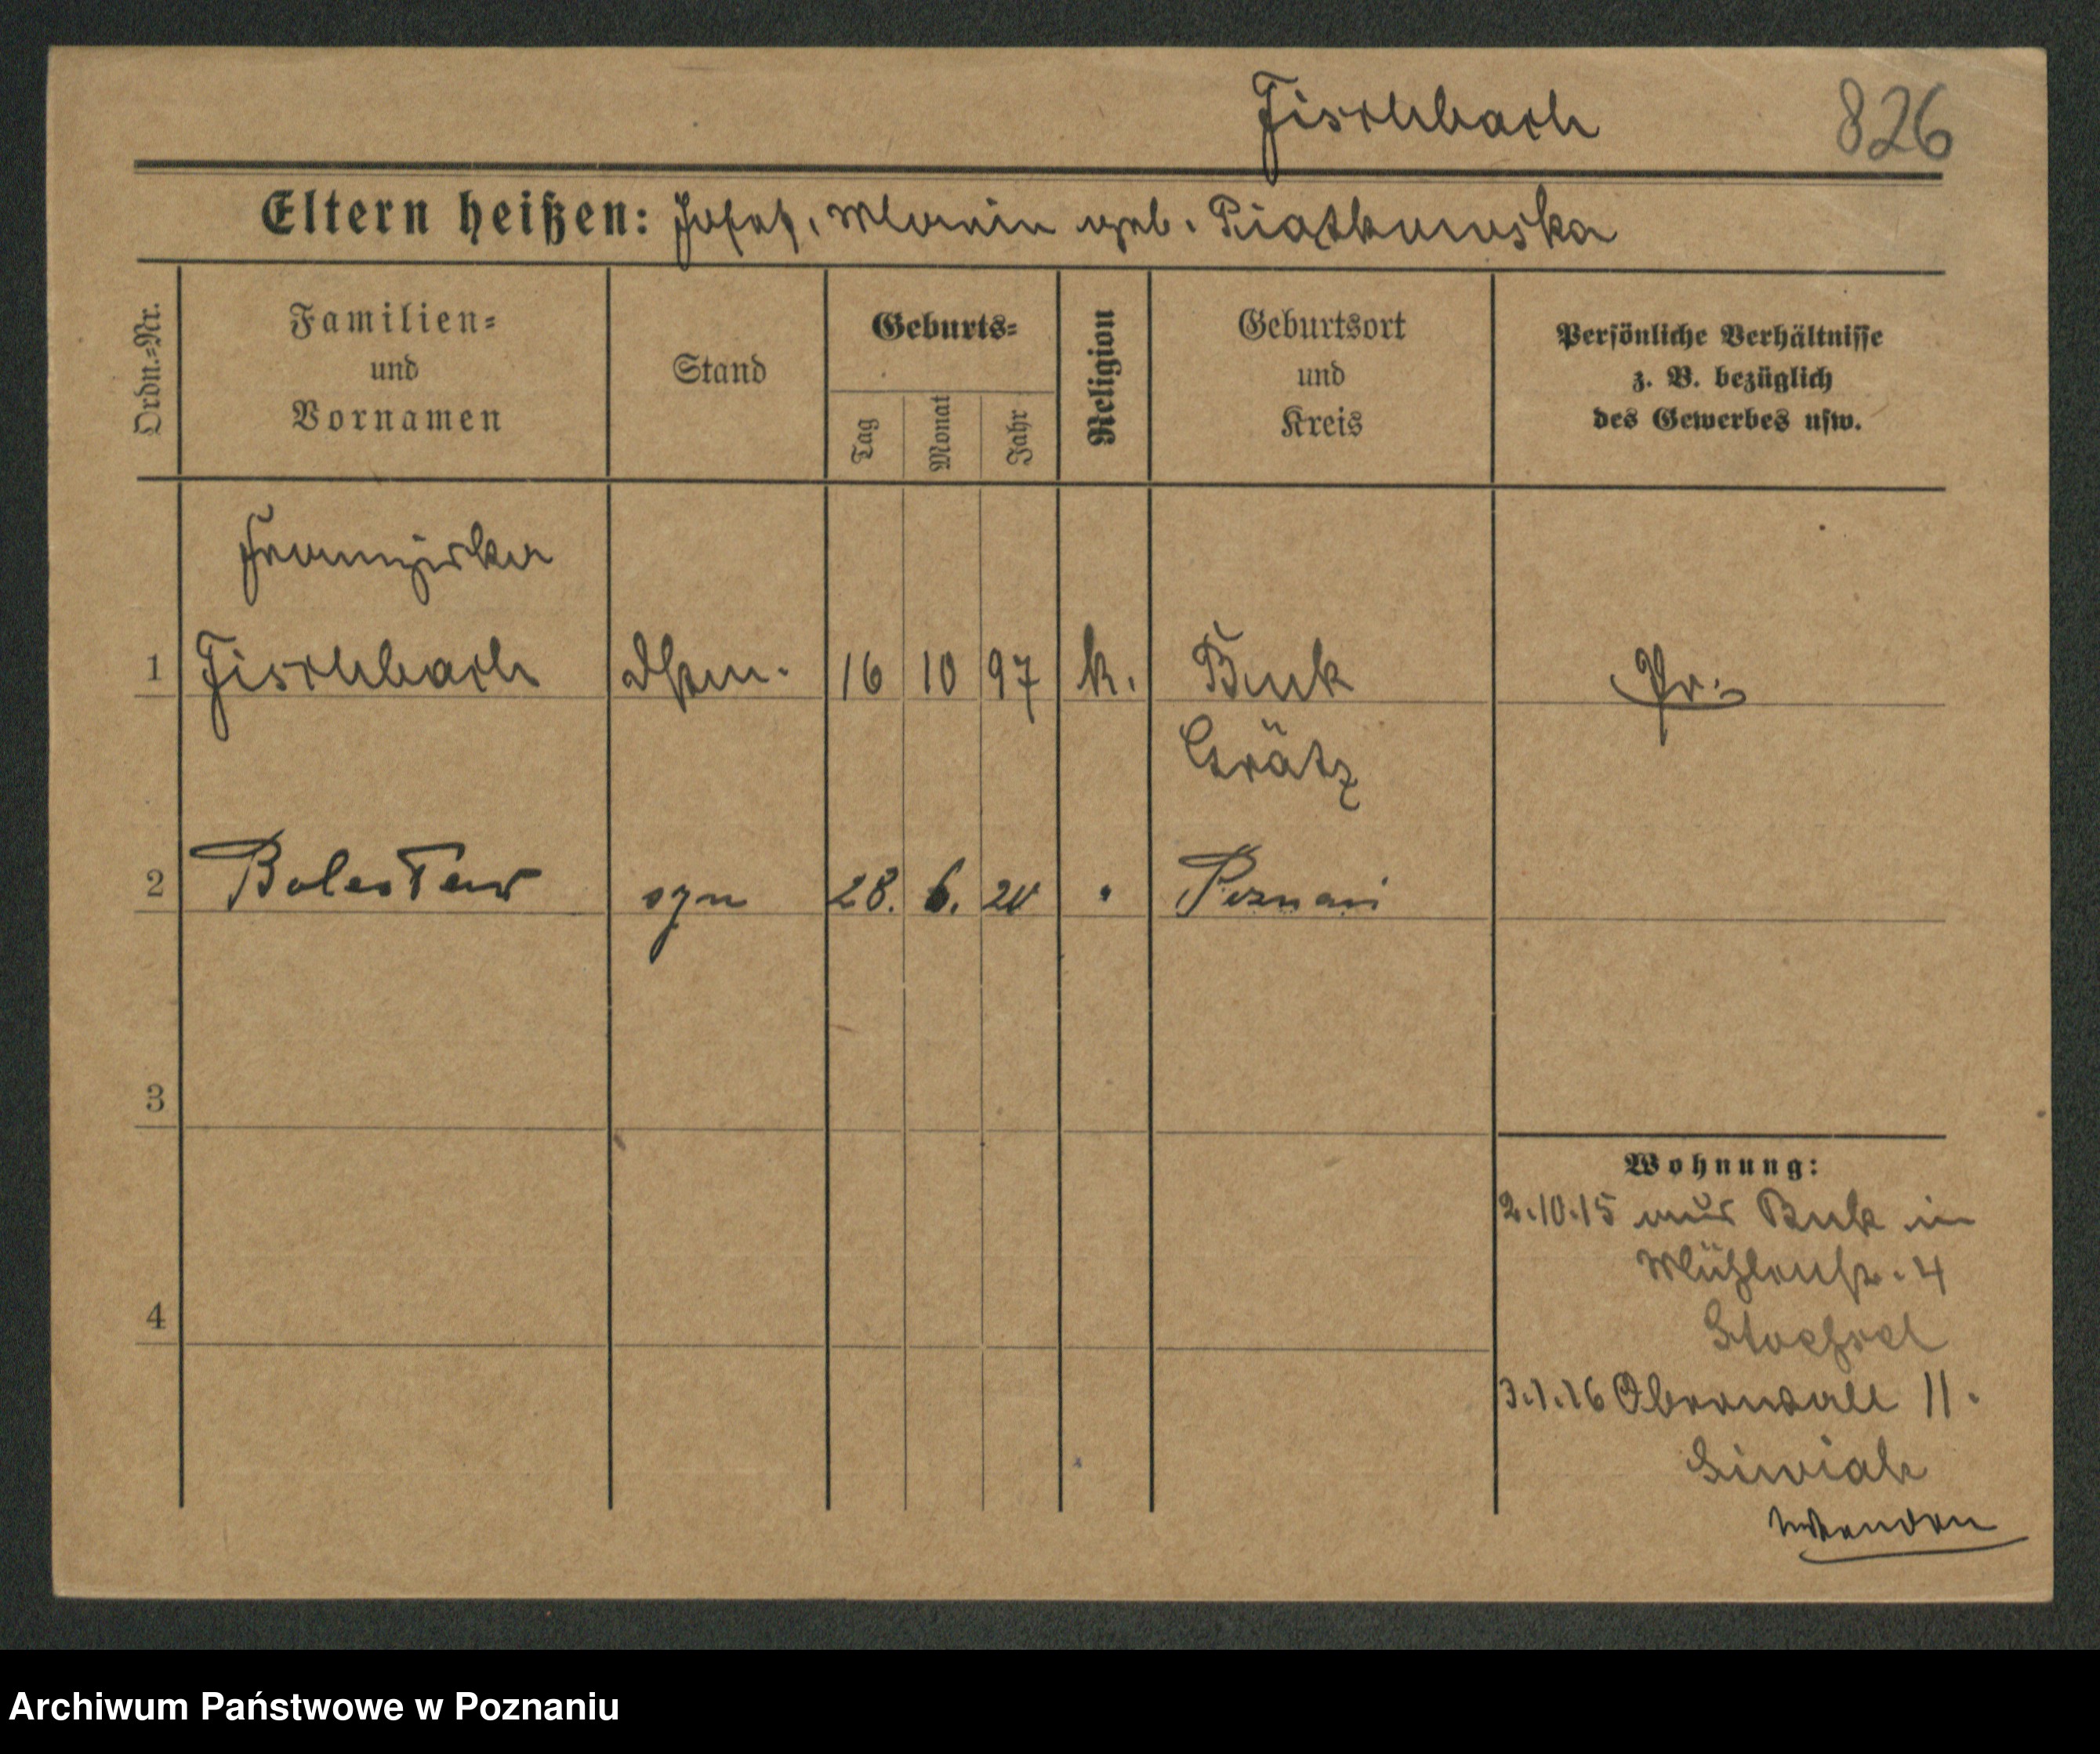 Fischbach 826
Eltern heißen: Josef, Marie geb. Piątkowska
Ordn.=Nr.
Familien=
und
Vornamen
Stand
Geburts=
Tag
Monat
Jahr
Religion
Geburtsort
und
Kreis
Persönliche Verhältnisse
z. B. bezüglich
des Gewerbes usw.
Franziska
1 Fischbach Dstm. 16 10 97 k. Buk Pr.
Grätz
2 Bolesław syn 28. 6. 20 Poznań
3
4
Wohnung:
2.10.15 aus Buk in
Mühlenstr. 4
3.1.16 Oberwall 11.
Siwiak
Wenden
Archiwum Państwowe w Poznaniu